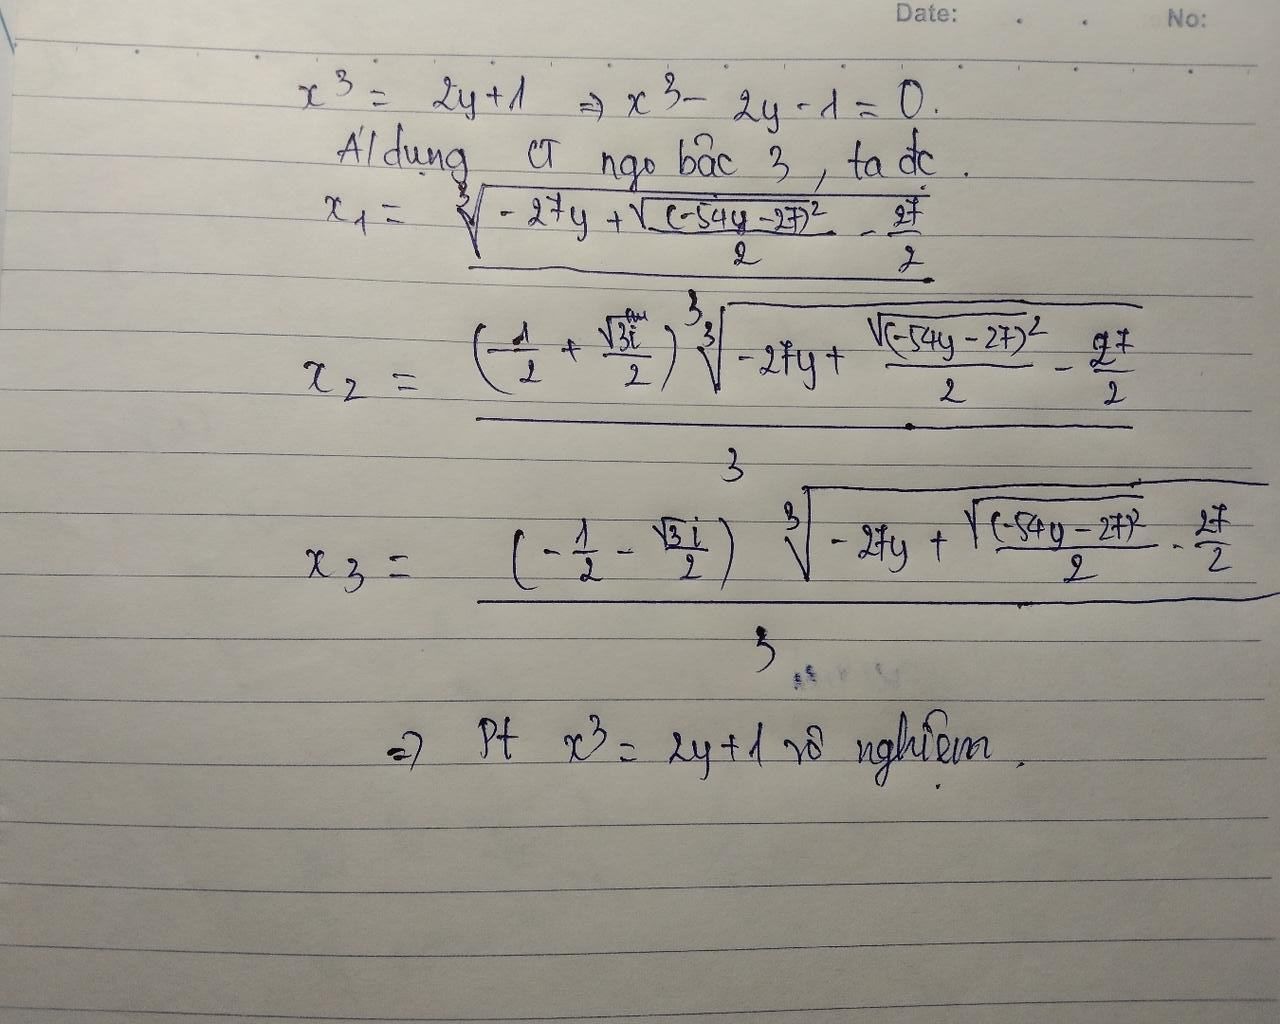 Date: . . No:
x³ = 2y+1 ⇒ x³ - 2y - 1 = 0.
Á/dụng CT ngo bậc 3, ta đc.
x₁ = ∛(-27y + √((-54y-27)²)/2 - 27/2)
x₂ = (-1/2 + √3i/2) ∛(-27y + √((-54y-27)²)/2 - 27/2) / 3
x₃ = (-1/2 - √3i/2) ∛(-27y + √((-54y-27)²)/2 - 27/2) / 3
⇒ Pt x³ = 2y+1 vô nghiệm.